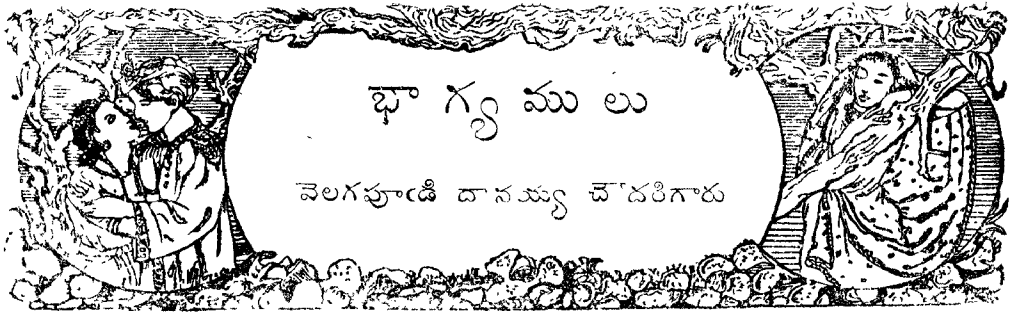 భాగ్యములు
వెలగపూఁడి దానయ్య చౌదరిగారు